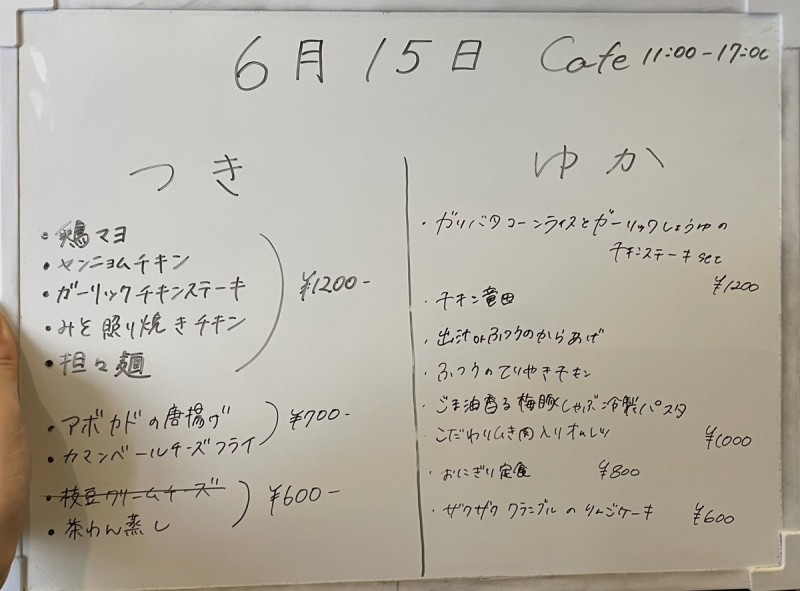 6月15日 Cafe 11:00-17:00
つき
・鶏マヨ
・ヤンニョムチキン
・ガーリックチキンステーキ
・みそ照り焼きチキン
・担々麺
¥1200-
・アボカドの唐揚げ
・カマンベールチーズフライ
¥700-
・枝豆クリームチーズ
・茶わん蒸し
¥600-
ゆか
・ガリバタコーンライスとガーリックしょうゆの
チキンステーキset
¥1200
・チキン竜田
・出汁orふつうのからあげ
・ふつうのてりやきチキン
・ごま油香る梅豚しゃぶ冷製パスタ
・こだわりひき肉入りオムレツ ¥1000
・おにぎり定食 ¥800
・ザクザククランブルのりんごケーキ ¥600